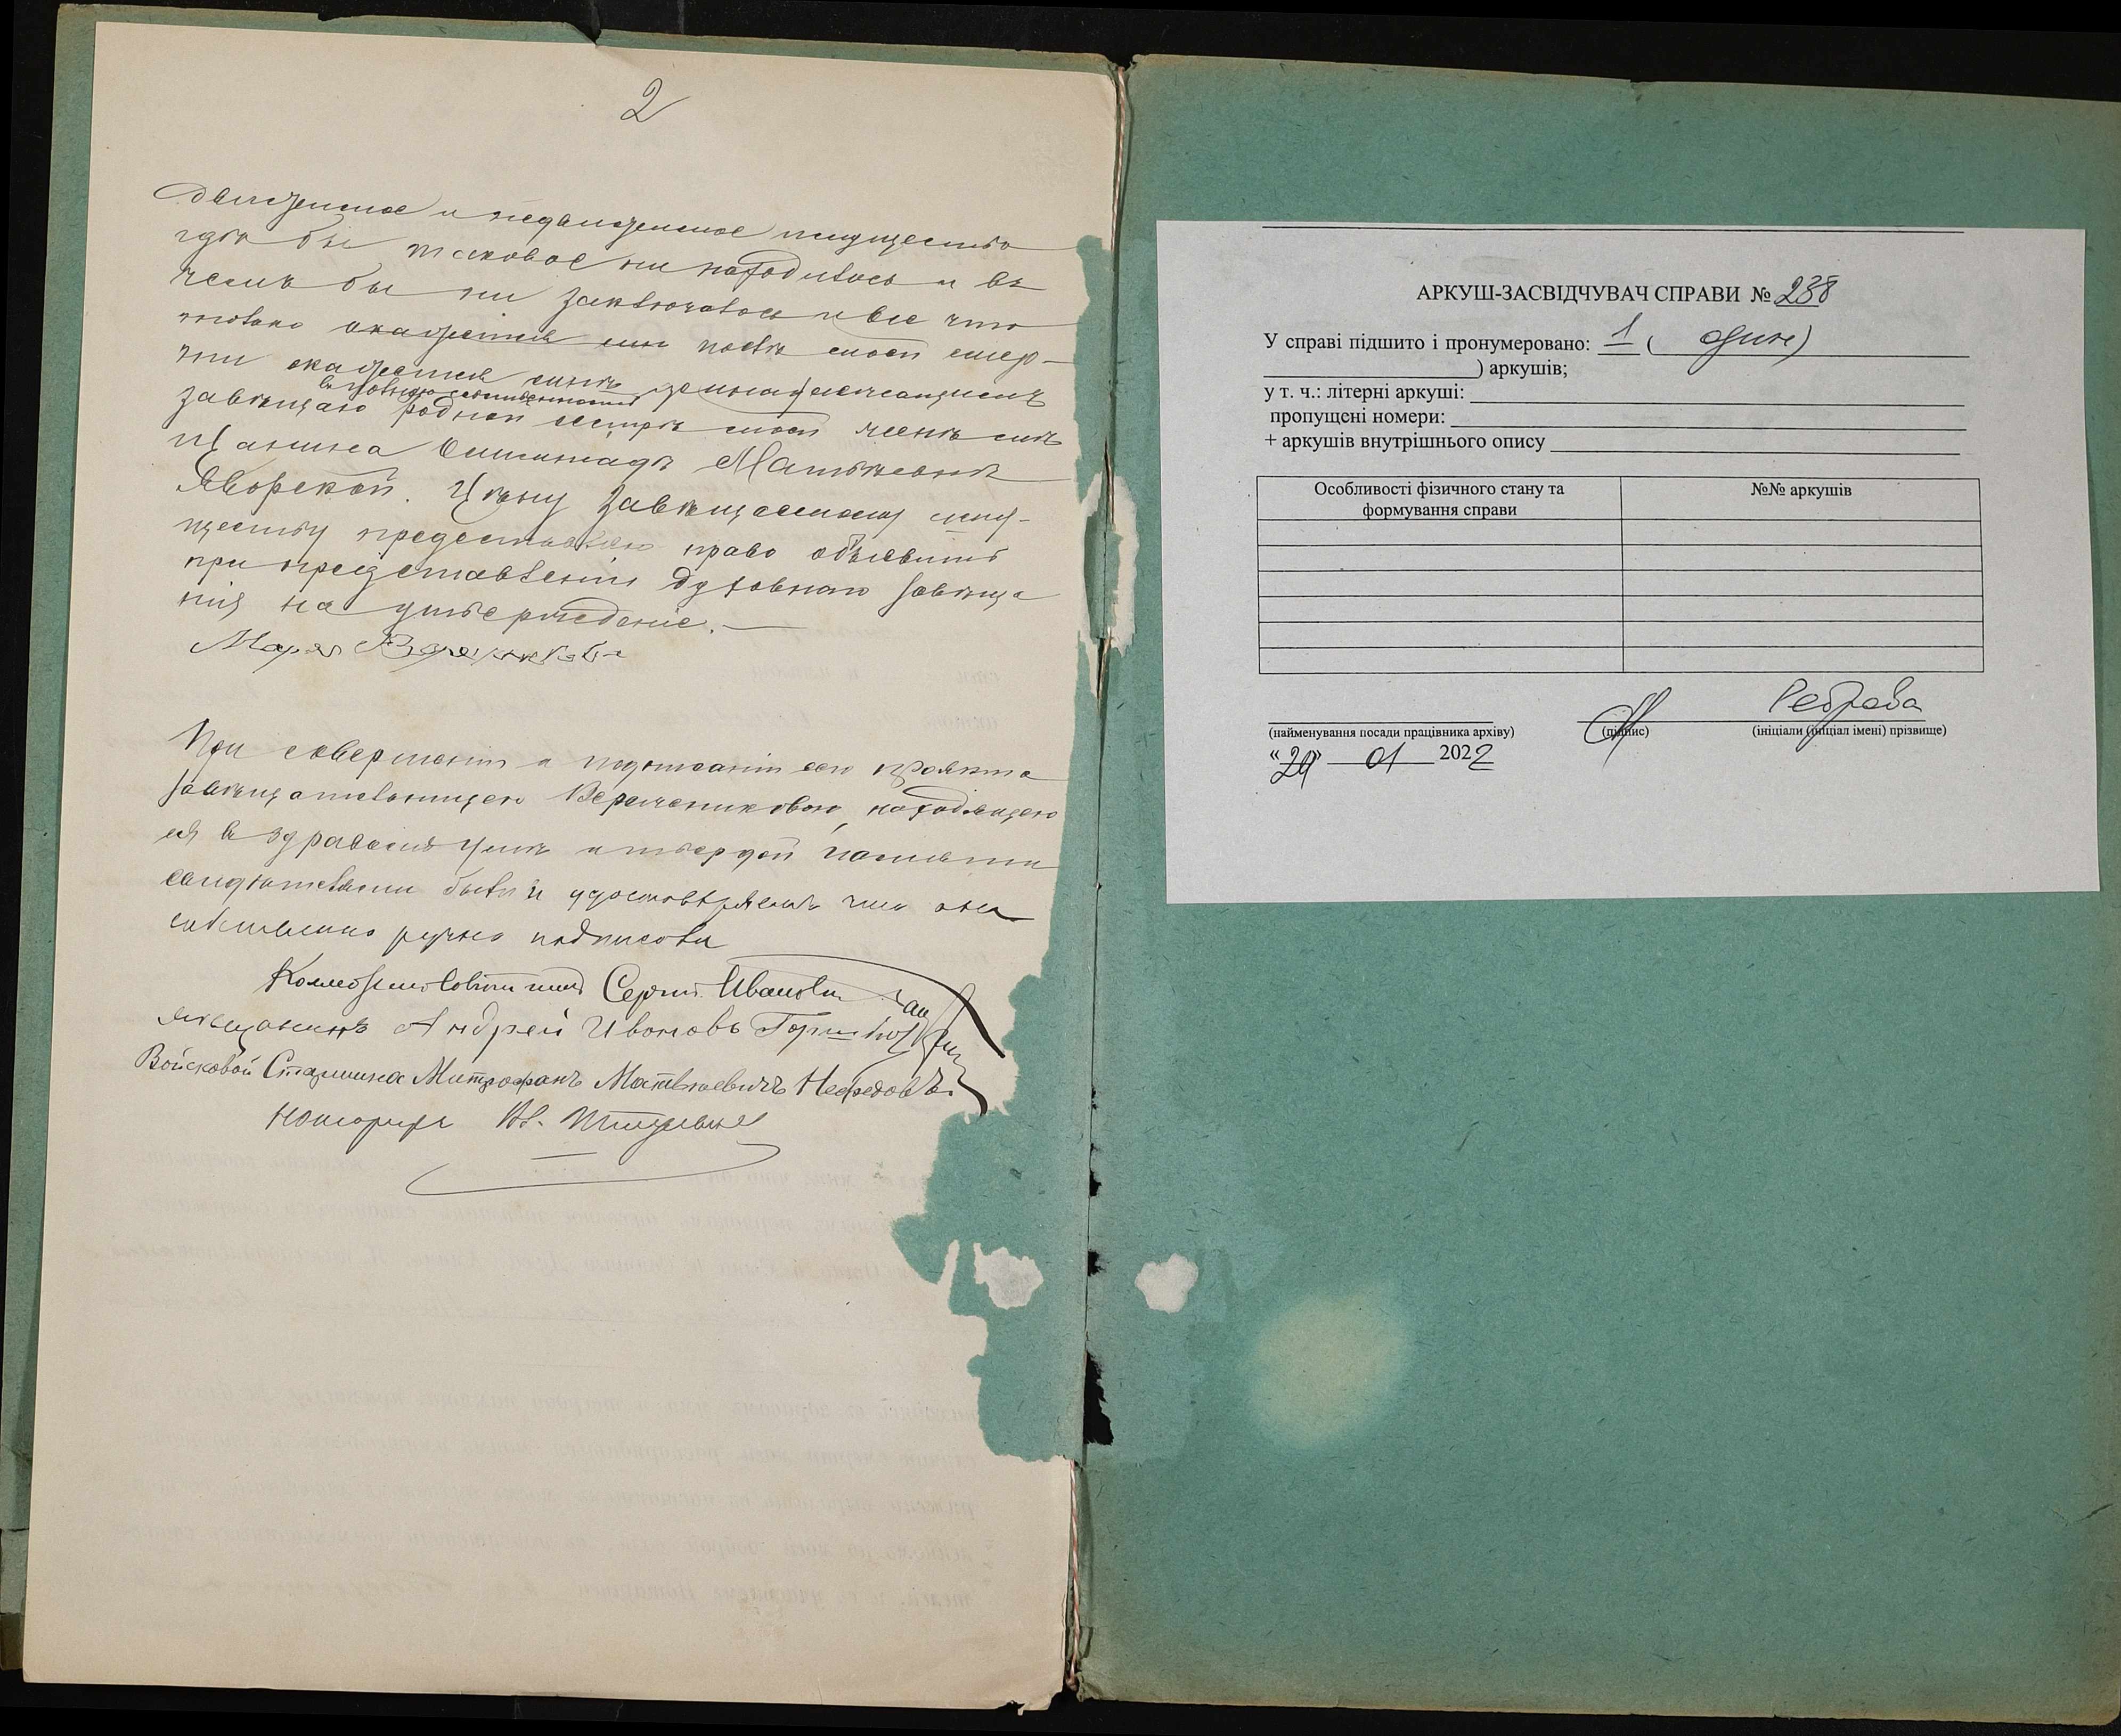 2
движимое и недвижимое имущество
гдѣ бы таковое ни находилось и въ
чемъ бы ни заключалось и все что
только окажется послѣ моей смер-
ти окажется мнѣ принадлежащимъ
въ полную собственность
завѣщаю родной сестрѣ моей женѣ
Матвѣевнѣ
Яворской. Цѣну завѣщаемому иму-
ществу предоставляю право объявить
при представленіи духовнаго завѣща
нія на утвержденіе.
Марія
При совершеніи и подписаніи сего проэкта
завѣщательницею находящею
ся въ здравомъ умѣ и твердой памяти
свидѣтелями были и удостовѣряемъ что она
собственно ручно подписала
Сергѣй Иванов
мѣщанинъ Андрей Ивановъ
Войсковой Старшина Митрофанъ Матвѣевичъ Нефедовъ
Нотаріусъ
АРКУШ-ЗАСВІДЧУВАЧ СПРАВИ № 238
У справі підшито і пронумеровано: 1 ( один)
) аркушів;
у т. ч.: літерні аркуші:
пропущені номери:
+ аркушів внутрішнього опису
Особливості фізичного стану та формування справи
№№ аркушів
Реброва
(найменування посади працівника архіву) (підпис) (ініціали (ініціал імені) прізвище)
"20" 01 2022